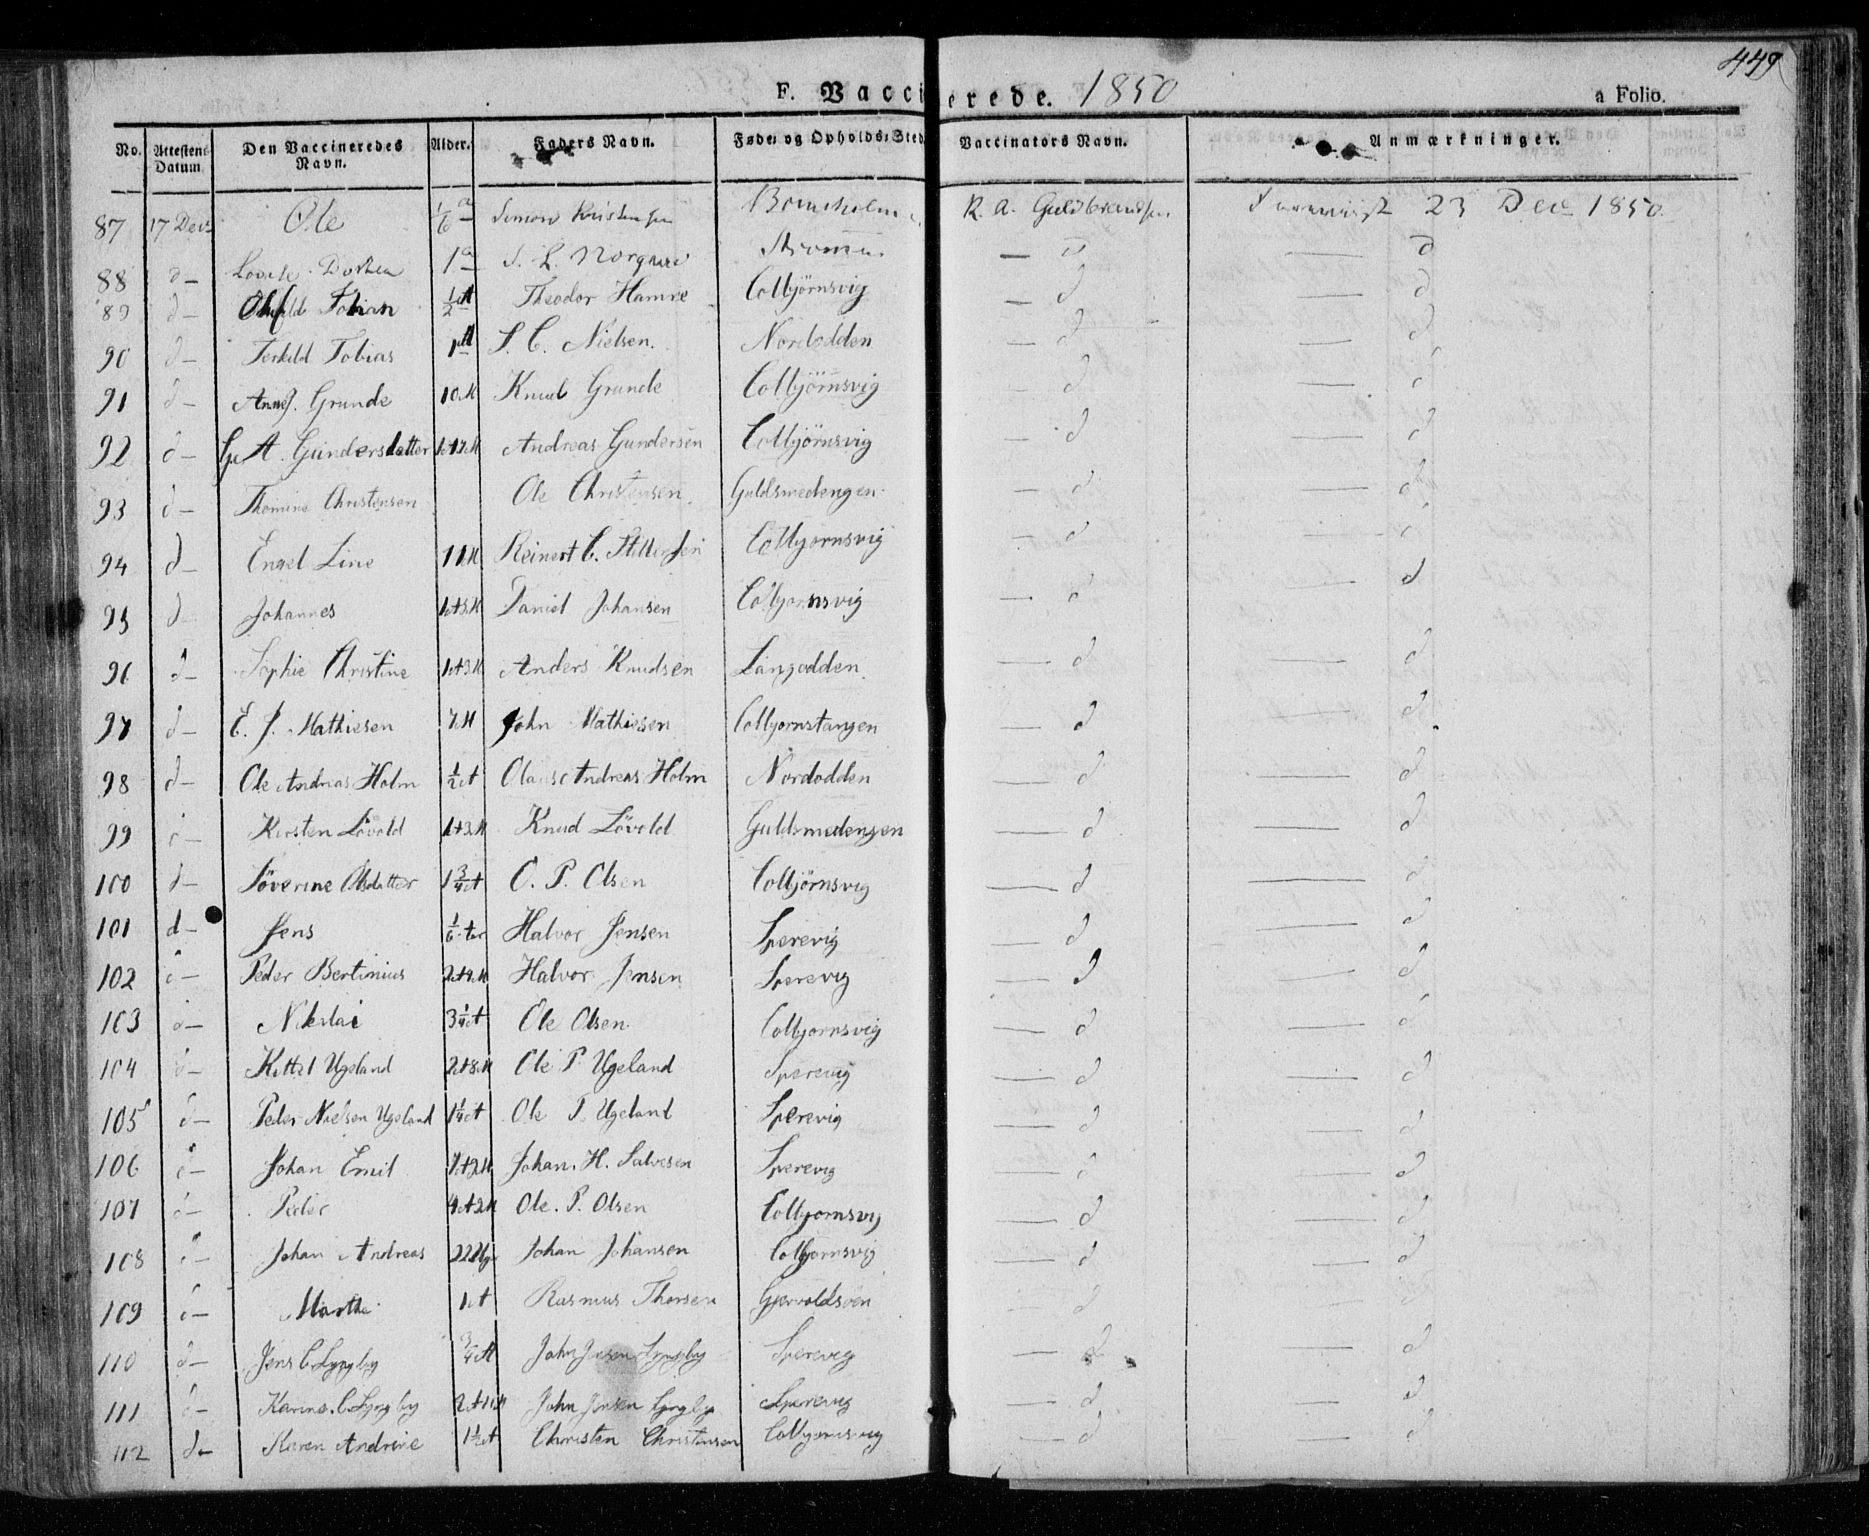 449
F. Vaccinerede. 1850
a Folio.
No. Attestens Datum Den Vaccineredes Navn. Alder. Faders Navn. Føde- og Opholds-Sted Vaccinators Navn. Anmærkninger.
87 17 Dec Ole 1/6 a Simon Kristensen R. A. Guldbrandsen 23 Dec 1850
88 d – Dorthea 1 a S. L. Norgaard — d — d
89 d – Tobias 1/2 A Theodor Hamre Colbjörnsvig — d — d
90 d – Terkild Tobias S. C. Nielsen. Nordodden — d — d
91 d – Grunde 10 M Knud Grunde Colbjörnsvig — d — d
92 d – A. Gundersdatter Andreas Gundersen Colbjörnsvig — d — d
93 d – Thomine Christensen Ole Christensen Guldsmedengen — d — d
94 d – Engel Line 11 M Reinert C. Colbjornsvig — d — d
95 d – Johannes Daniel Johansen Colbjornsvig — d — d
96 d – Sophie Christine 1 A 3 M Anders Knudsen Langodden. — d — d
97 d – E. J. Mathiesen 7 M John Mathiesen Colbjornstangen — d — d
98 d – Ole Andreas Holm 1/2 A Olaus Andreas Holm Nordodden — d — d
99 d – Kirsten Lövold 1 A 3 M Knud Lövold Guldsmedengen — d — d
100 d – Söverine Olsdatter 1 3/4 A O. P. Olsen Colbjörnsvig — d — d
101 d – Jens 1/6 Halvor Jensen Sperevig — d — d
102 d – Peder Bertinius Halvor Jensen Sperevig — d — d
103 d – Nikolai 3 1/4 A Ole Olsen Colbjornsvig — d — d
104 d – Kittel Ugeland 2 A 8 M Ole P. Ugeland Sperevig — d — d
105 d – Peder Nielsen Ugeland 1 1/4 A Ole P. Ugeland Sperevig — d — d
106 d – Johan Emil Johan. H. Salvesen Sperevig — d — d
107 d – Peder 4 A 2 M Ole. P. Olsen Colbjornsvig — d — d
108 d – Johan Andreas 22 Uger Johan Johansen Colbjornsvig — d — d
109 d – Marthe 1 A Rasmus Thorsen Gjervoldsöen — d — d
110 d – Jens C Lyngby 3/4 A John Jensen Lyngby Sperevig — d — d
111 d – Karine. C Lyngby 2 A 11 M John Jensen Lyngby Sperevig — d — d
112 d – Karen Andrine 1 1/2 A Christen Christensen Colbjornsvig — d — d